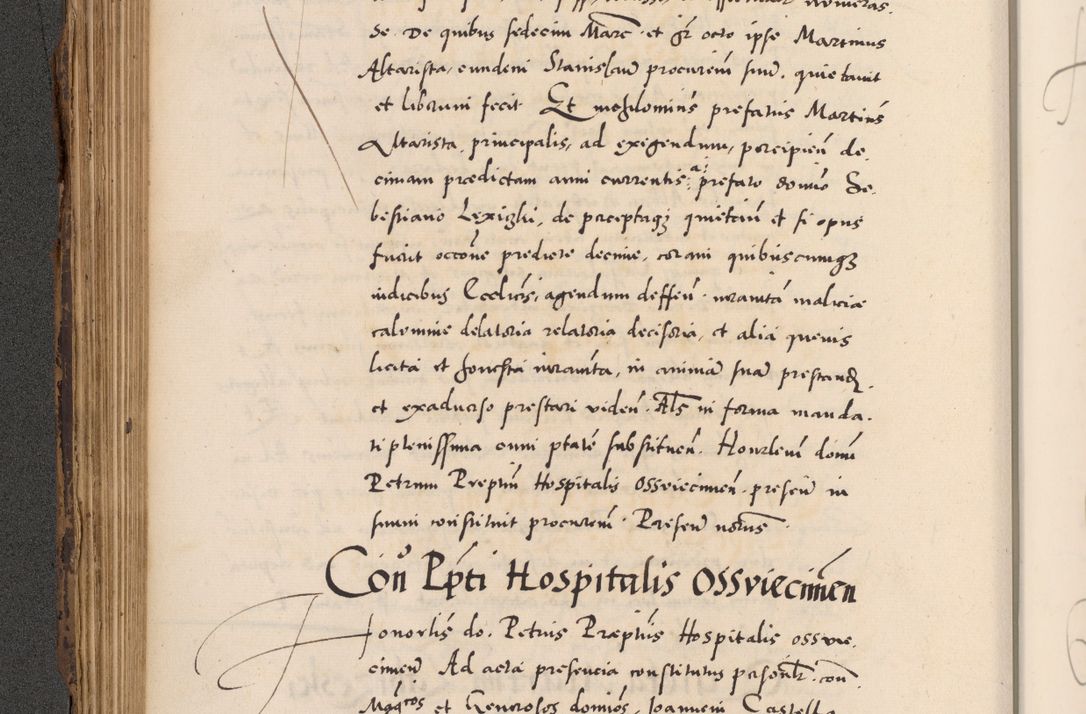 de. De quibus sedecim Marc. et gr. octo ipse Martinus
Altarista, eundem Stanislaū procurem suū. quietauit
et liberum fecit Et nihilominus prefatus Martinus
Altarista, principalis, ad exigendum, percipien de.
cimam prædictam anni currentis, a prefato domīo Se.
bestiano Lexizki, de perceptisq quietan et si opus
fuerit occōne predicte decime, coram quibuscumq
iudicibus Ecclīcis, agendum deffen iuramta maliciæ
calumnie delatoria relatoria decisoria, et alia queuis
licita et honesta iuramta, in animā suā prestand.
et exaduerso prestari viden. Als in forma manda.
ti plenissima cum ptate substituen. Honorlem domī
Petrum Preptūm Hospitalis Ossviecimen presen in
suum constituit procurem. Presen notus
Con Pptī Hospitalis Ossviecimen
Honorlis do. Petrus Præptus Hospitalis ossvie.
cimen Ad acta presencia constitutus personlr. con
Mgcos et Generosos domios, Joannem Castell